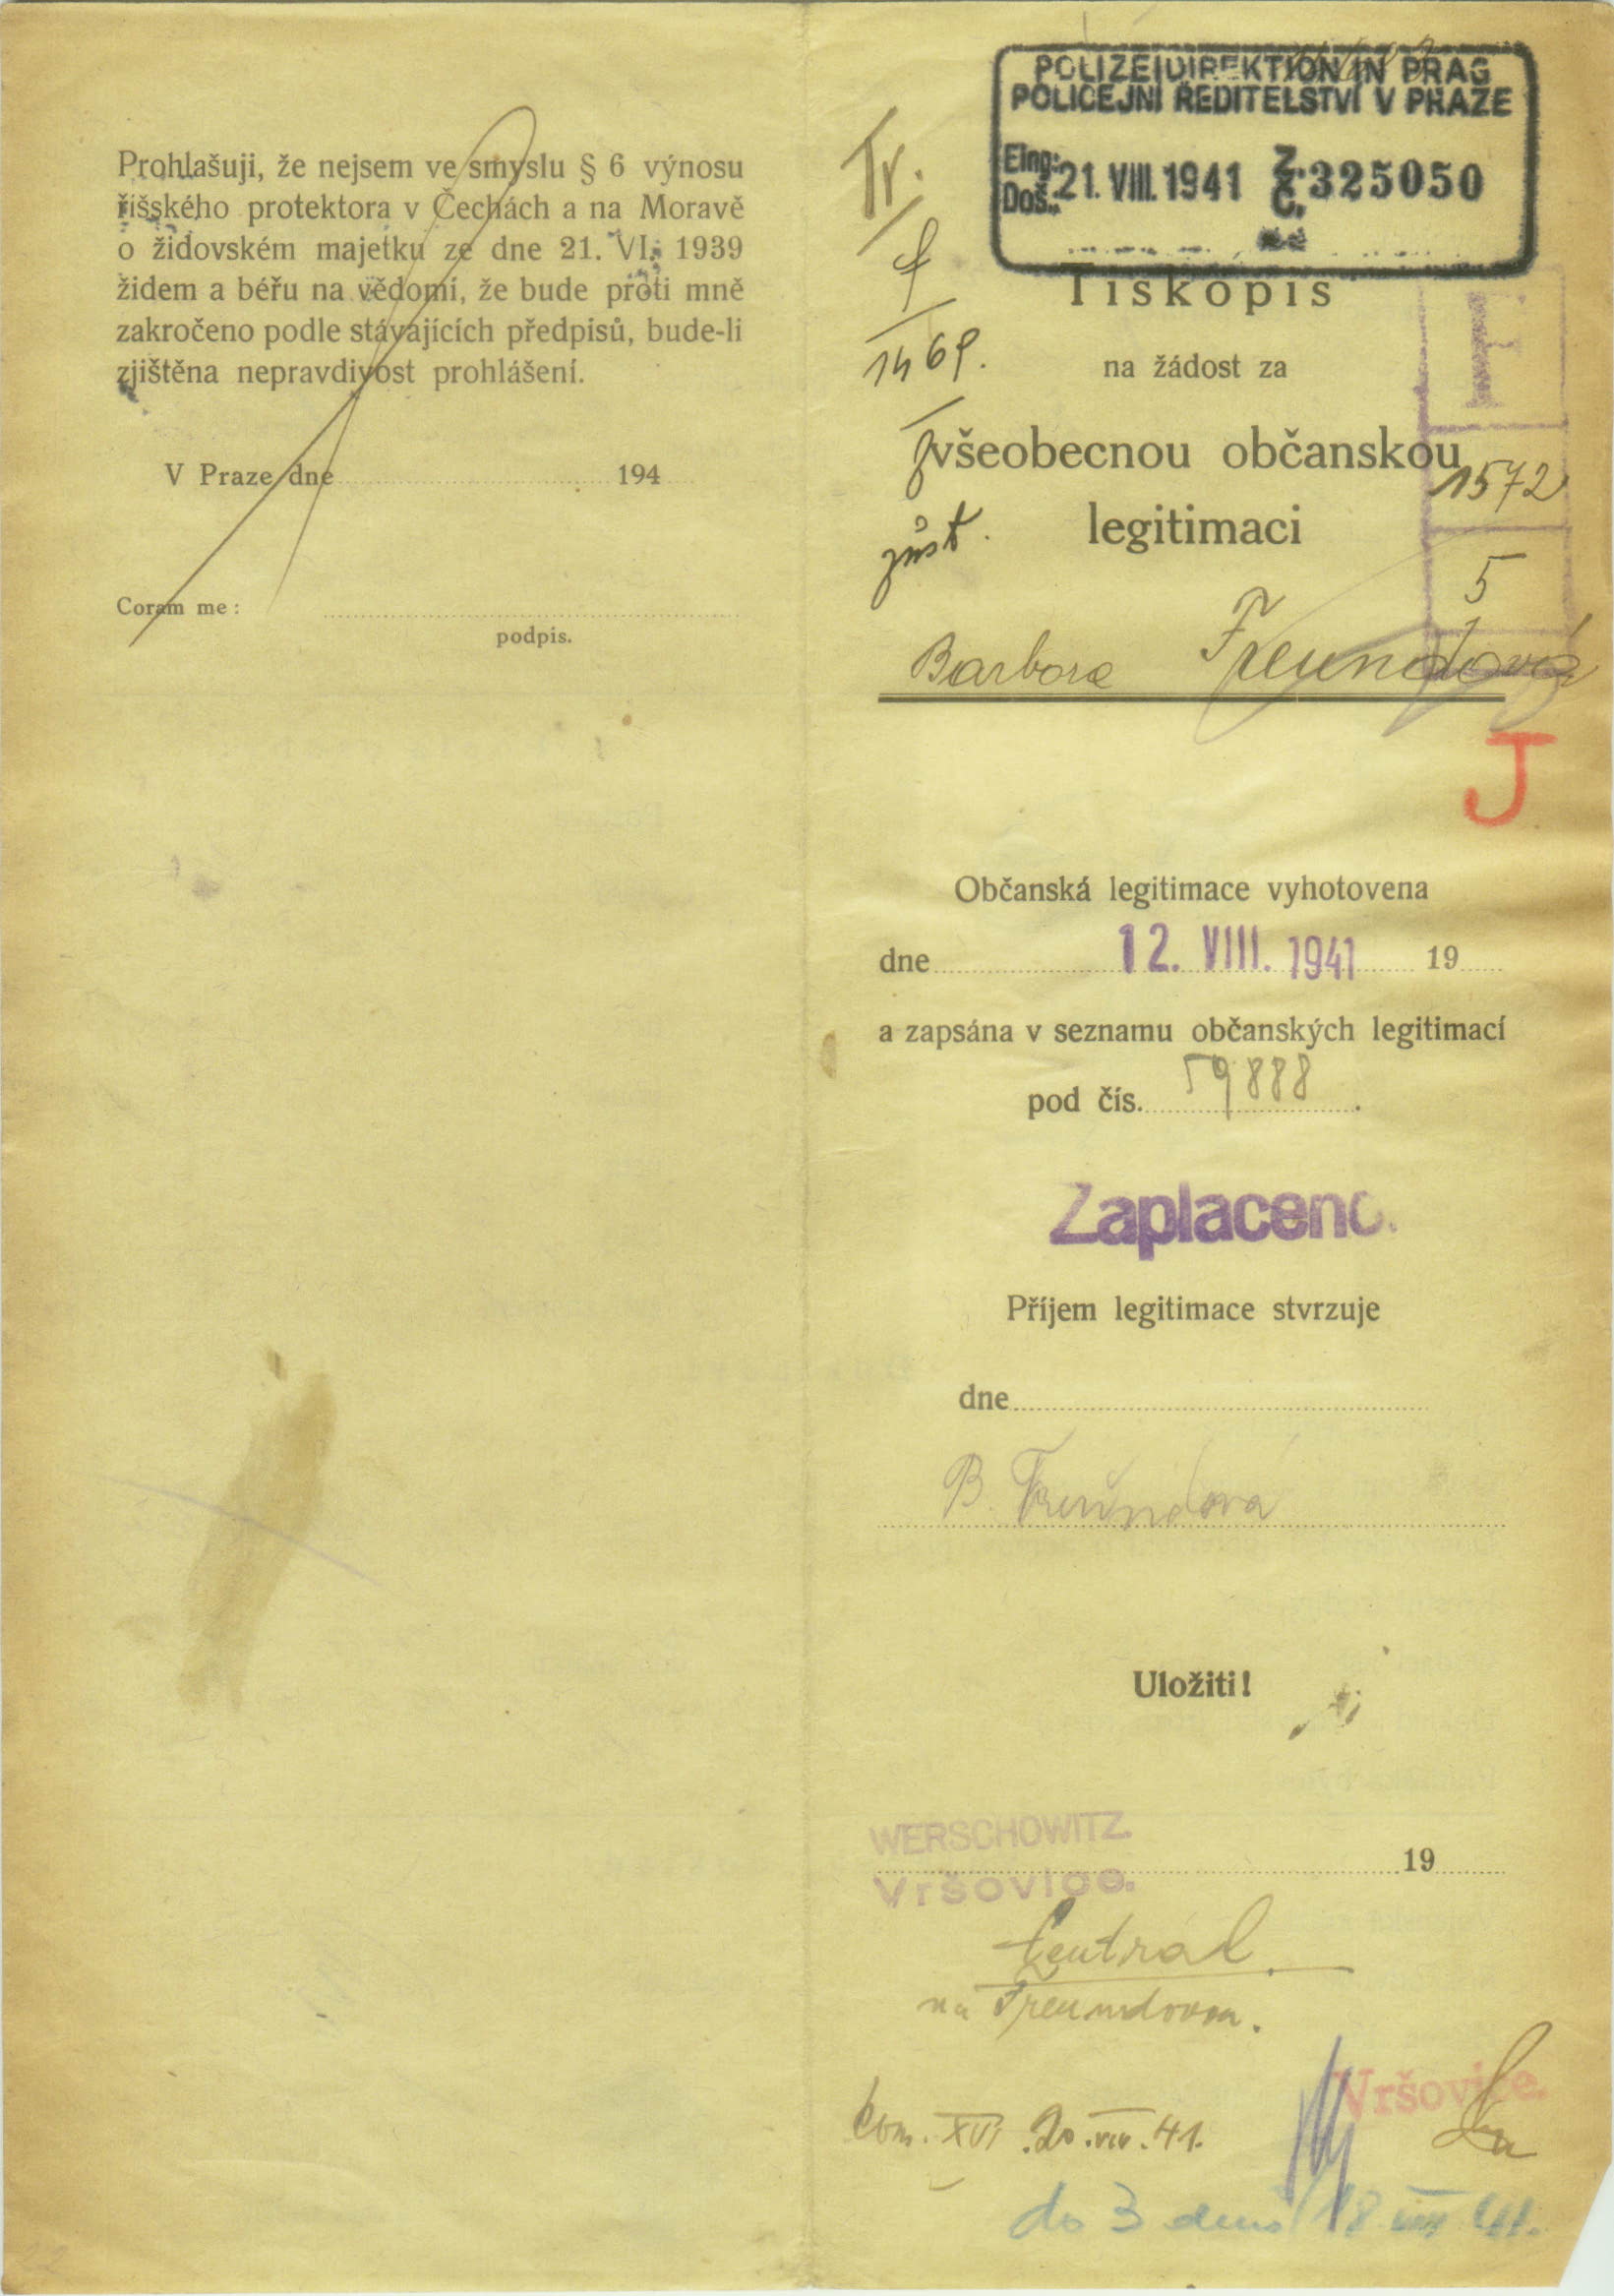 Prohlašuji, že nejsem ve smyslu § 6 výnosu
říšského protektora v Čechách a na Moravě
o židovském majetku ze dne 21. VI. 1939
židem a béřu na vědomí, že bude proti mně
zakročeno podle stávajících předpisů, bude-li
zjištěna nepravdivost prohlášení.
V Praze dne 194
Coram me:
podpis.
POLIZEIDIREKTION IN PRAG
POLICEJNÍ ŘEDITELSTVÍ V PRAZE
Eing.:
Doš.: 21. VIII. 1941 Z. Č. 325050
Tiskopis
F
1469.
na žádost za
všeobecnou občanskou
1572
legitimaci
5
Barbora Freundová
J
Občanská legitimace vyhotovena
dne 12. VIII. 1941 19
a zapsána v seznamu občanských legitimací
pod čís. 59888.
Zaplaceno.
Příjem legitimace stvrzuje
dne
B. Freundová
Uložiti!
WERSCHOWITZ.
19
Vršovice.
Central.
na Freundovou.
Vršovice.
Com. XVI. 20. VIII. 41.
do 3 dnů 18 VIII 41.